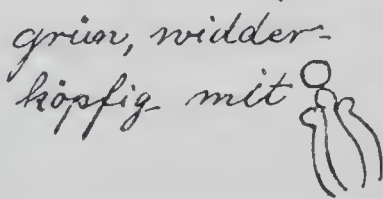 grün, widder-
köpfig mit